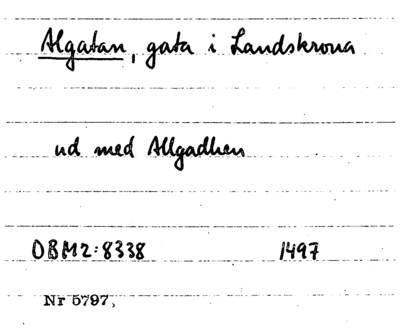 Algatan, gata i Landskrona
ud med Allgadhen
DBM2:8338 1497
Nr 5797,